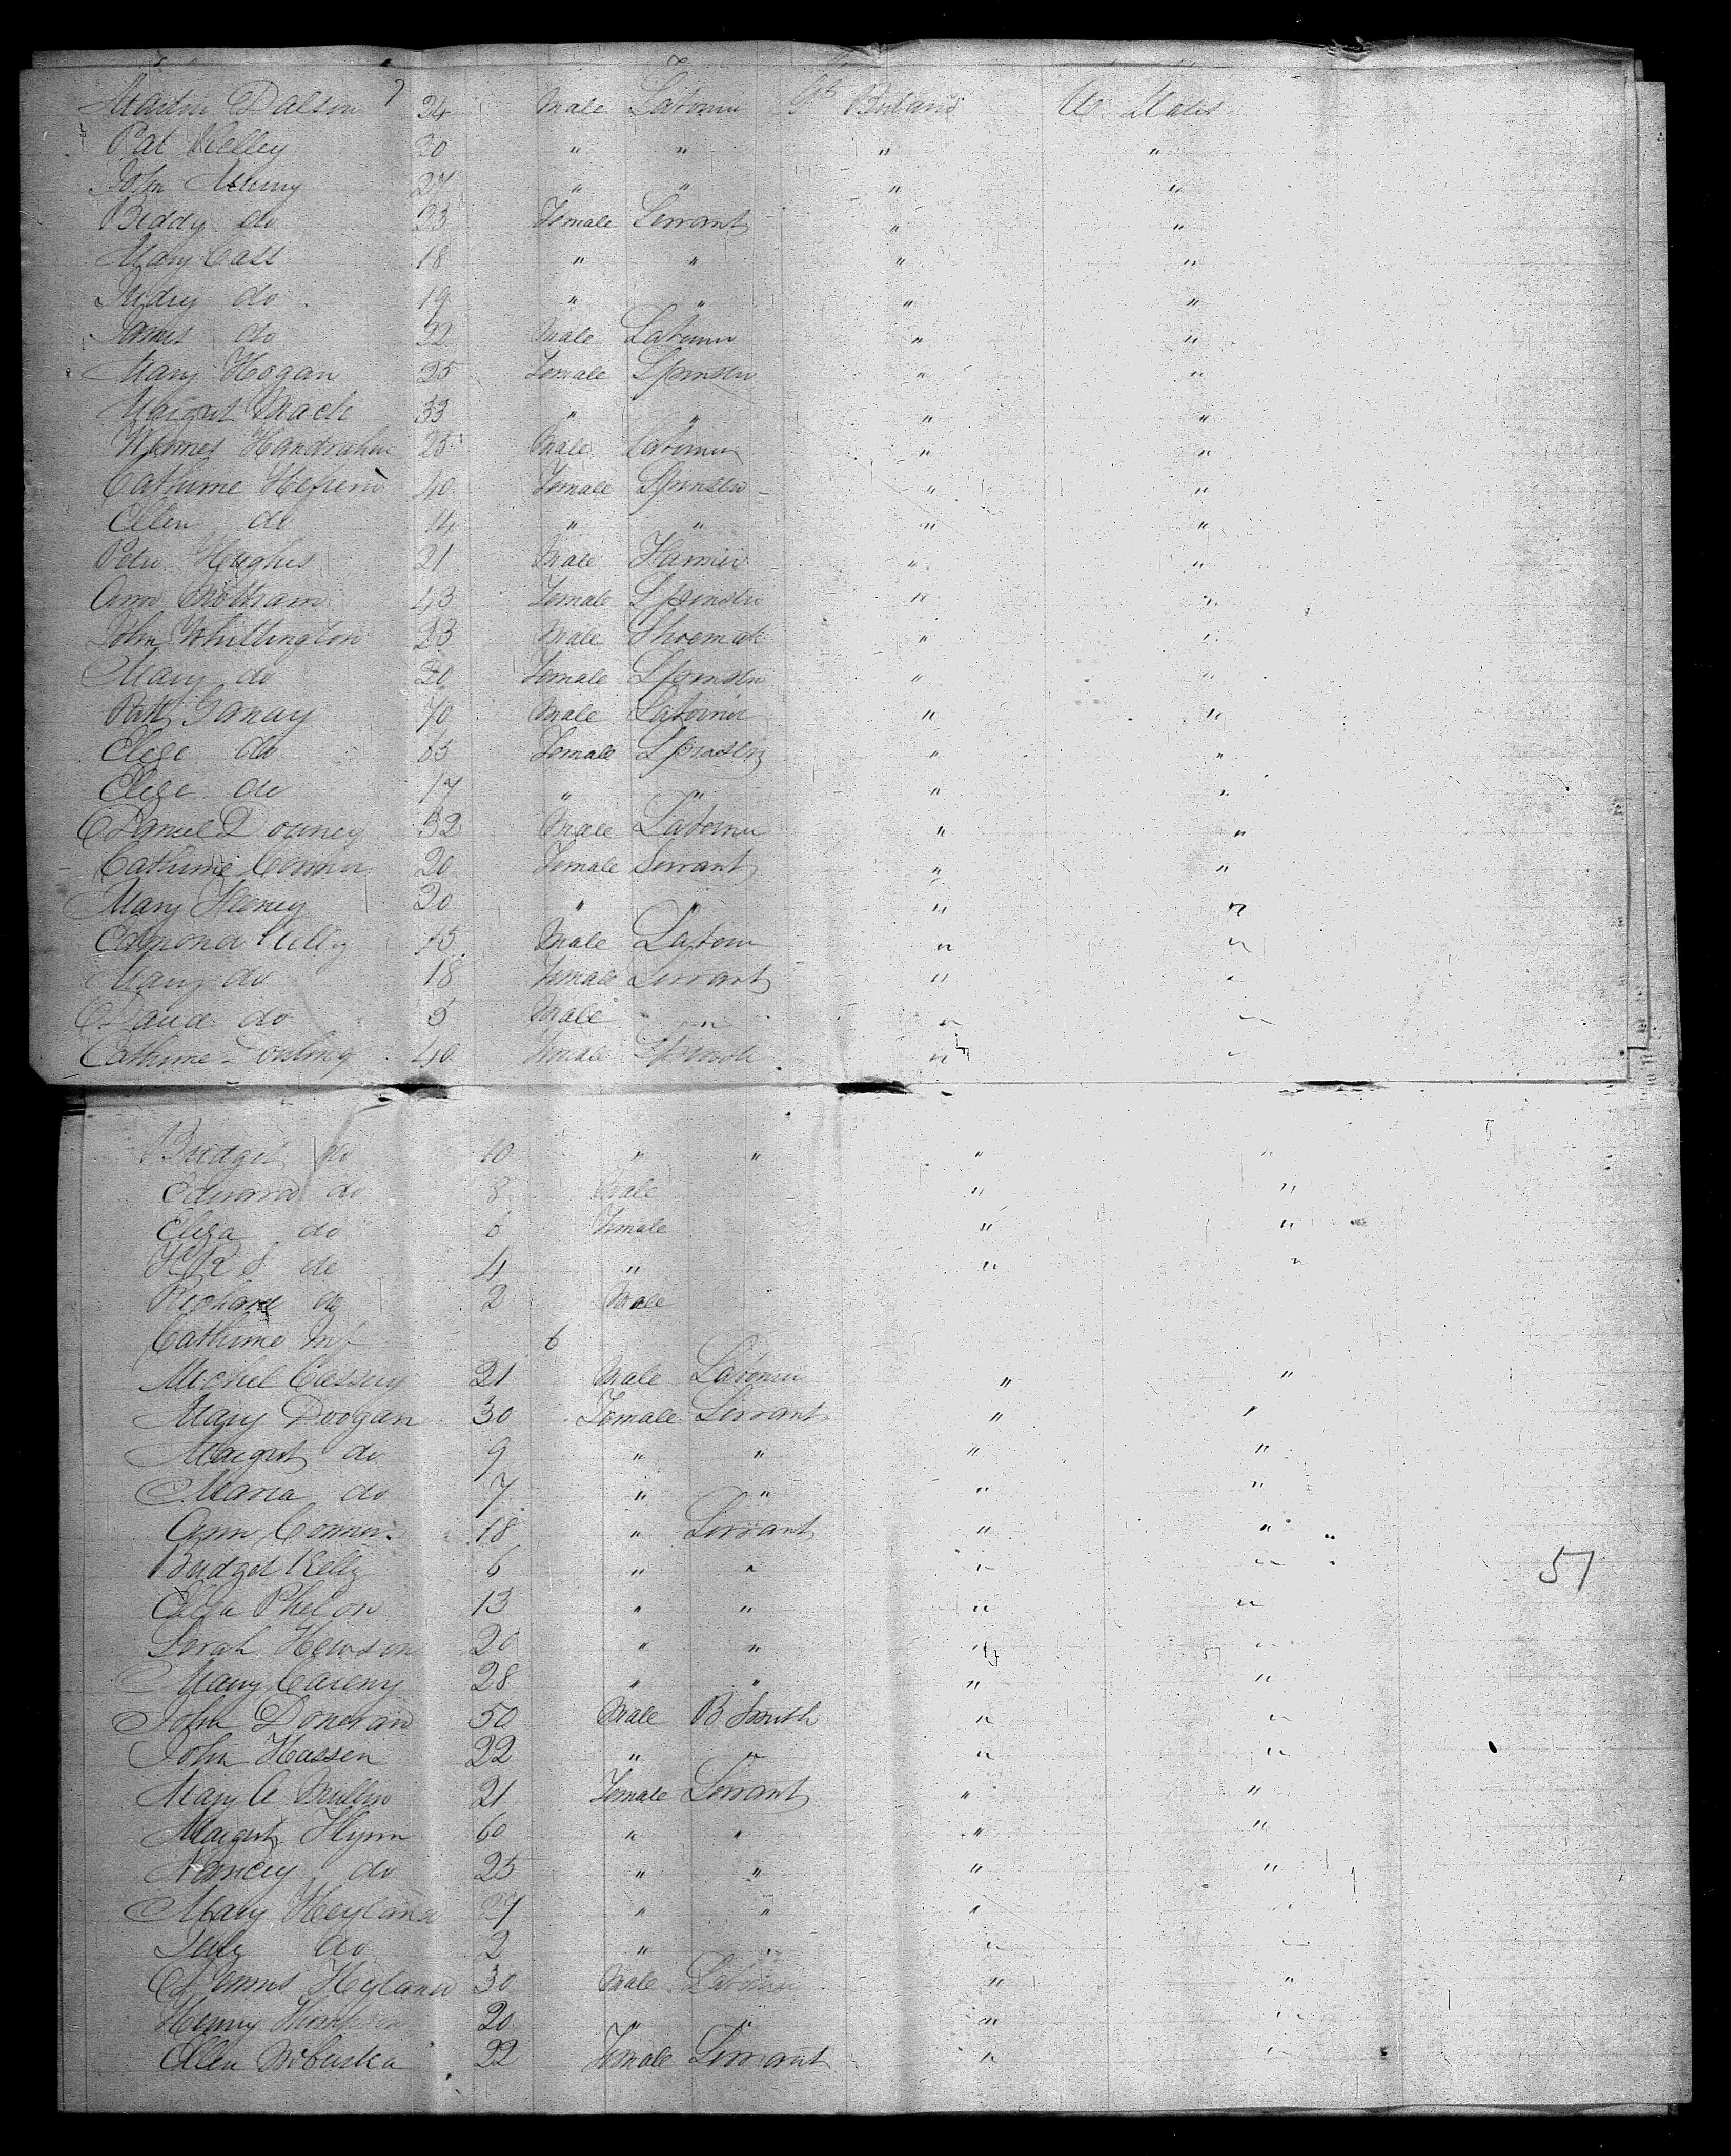 Martin Dalson 24 Male Labourer Gt Britain U States
Pat Kelley 30 " " " "
John 27 " " " "
Biddy do 23 Female Servant " "
Mary Cass 18 " " " "
do 19 " " " "
James do 22 Male Labourer " "
Mary Hogan 25 Female Spinster " "
Margret 33 " " " "
Handrahan 25 Male Labourer " "
Catherine 40 Female Spinster " "
Ellen do 14 " " " "
Peter Hughes 21 Male Farmer " "
Ann 43 Female Spinster " "
John Whittington 23 Male Shoemak " "
Mary do 20 Female Spinster " "
Patt 70 Male Labourer " "
Elize do 65 Female Spinster " "
Elize do 17 " " " "
Daniel Downey 32 Male Labourer " "
Catherine Connor 20 Female Servant " "
Mary Heeney 20 " " " "
Edmond Kelly 15 Male Labour " "
Mary do 18 Female Servant " "
David do 5 Male " " "
Catherine 40 Female Spinste " "
Bridget do 10 " " " "
Edward do 8 Male " "
Eliza do 6 Female " "
do 4 " " "
Richard do 2 Male
Catherine Inf 6
Michel Cassey 21 Male Labourer " "
Mary Doogan 30 Female Servant " "
Margret do 9 " " " "
Maria do 7 " " " "
Ann Conner 18 " Servant " "
Bridget Kelly 6 " " " "
51
Eliza Phelon 13 " " " "
Sarah Hewson 20 " " " "
Mary 28 " " " "
John Donovan 50 Male B Smith " "
John Hassen 22 " " " "
Mary A Mullin 21 Female Servant " "
Margret Flynn 60 " " " "
Nancey do 25 " " " "
Mary Heyland 27 " " " "
July do 2 " " " "
Dennis Heyland 30 Male Labourer " "
Henry 20 " " " "
Ellen McCuska 22 Female Servant " "